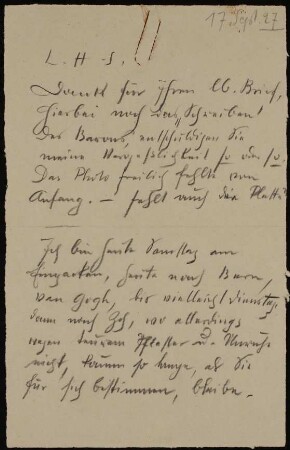 17. Sept. 27
L. H. S.,
Dankl für Ihren Brief,
hierbei noch das Schreiben
des Barons, entschuldigen Sie
meine Vergeßlichkeit so oder so.
Das Photo freilich fehlte von
Anfang. – fehlt auch die Platte?
Ich bin heute Samstag am
heute nach Bern,
van Gogh, bis vielleicht Dienstag,
dann nach Zch, wo allerdings
wegen teurem Pflaster u. Unruhe
nicht, kaum so lange, als Sie
für sich bestimmen, bleibe.